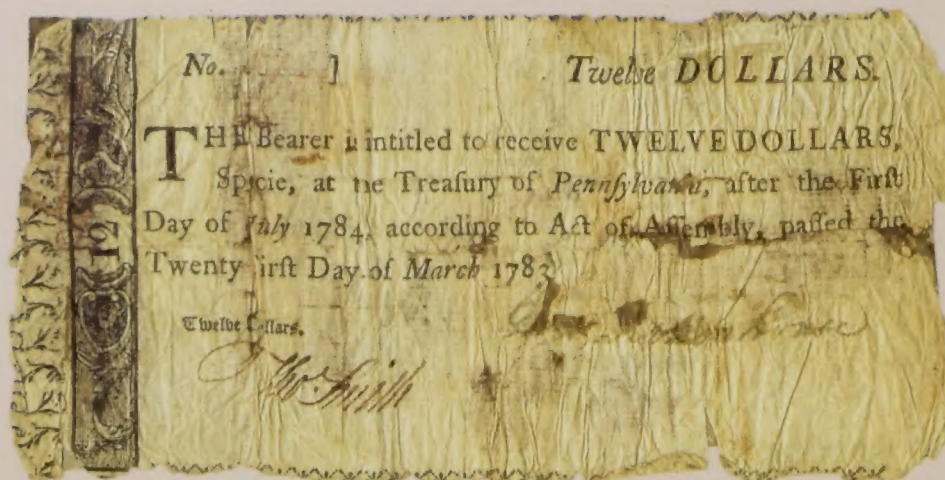 No. ] Twelve DOLLARS.
THE Bearer is intitled to receive TWELVE DOLLARS,
Specie, at the Treaſury of Pennſylvania, after the Firſt
Day of July 1784, according to Act of Aſſembly, paſſed the
Twenty firſt Day of March 1783
12
Twelve Dollars.
Tho.s Smith